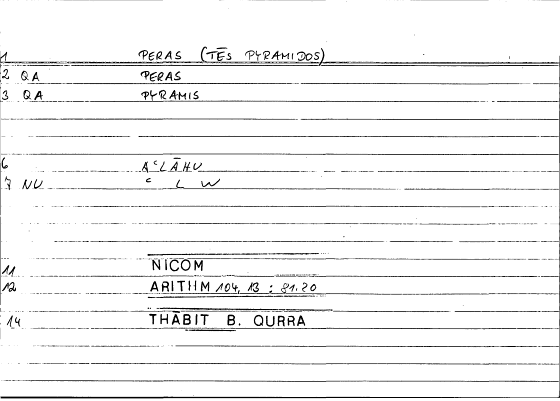 1 PERAS (TĒS PYRAMIDOS)
2 QA PERAS
3 QA PYRAMIS
6 AʿLĀHU
7 NU ʿ L W
11 NICOM
12 ARITHM 104,13 : 81.20
14 THĀBIT B. QURRA